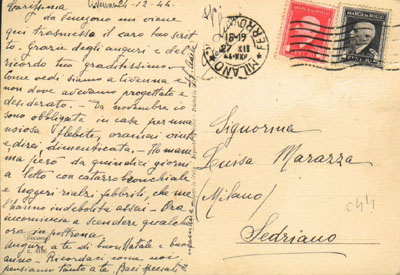 -12-44.
Carissima
da Luvegno mi viene
qui trasmesso il caro tuo scrit-
to. grazie degli auguri e del
ricordo tuo graditissimo.
Come vedi siamo a
non dove avevamo progettato e
desiderato. - Da novembre io
sono obbligata in casa per una
noiosa flebite, oramai vinta
e direi, dimenticata. - Ho mam-
ma però da quindici giorni
a letto con catarro bronchiale
e leggeri rialzi febbrili, che
l'hanno indebolita assai - Ora
incomincia a scendere qualche
ora in poltrona.
Auguri a te di buon Natale e buon
anno - Ricordaci come noi
pensiamo tanto a te. Baci speciali
MILANO
FERROVIA
18-19
27 XII
44-XXIII
MARCA DA BOLLO
MARCA DA BOLLO
Signorina
Luisa Marazza
(Milano)
Sedriano